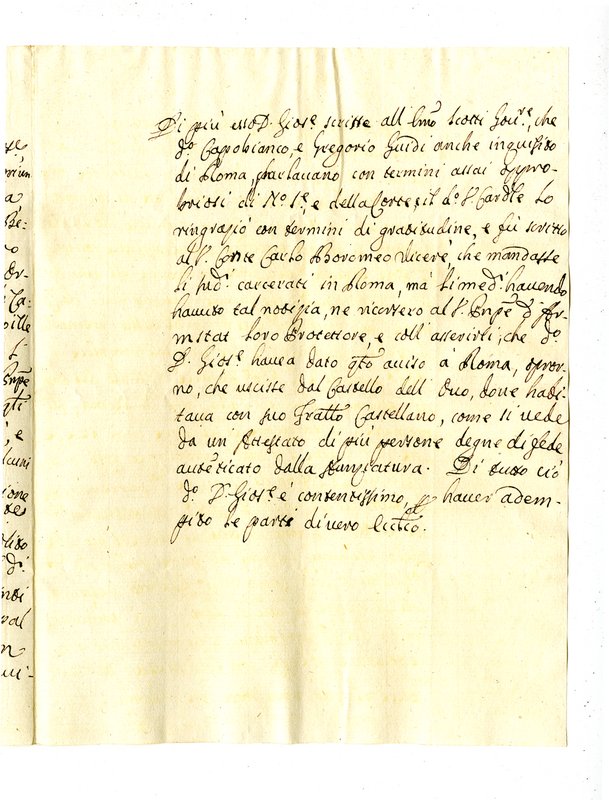 Di più esso D. Gios.e scrisse all' Em.o Scotti Gov.re, che
d.o Capobianco, e Gregorio Guidi anche inquisito
di Roma, parlavano con termini assai oppro-
briosi di N.o S.e, e della Corte, e il d.o S. Cardle lo
ringraziò con termini di gratitudine, e fù scritto
al S. Conte Carlo Boromeo Vicerè, che mandasse
li sud.i carcerati in Roma, mà li med.i havendo
havuto tal notizia, ne ricorsero al S. Pnpe d'Ar-
mstat loro Protettore, e coll' asserirli, che d.o
D. Gios.e havea dato qto aviso à Roma, opror-
no, che uscisse dal Castello dell' Ovo, dove habi-
tava con suo Fratto Castellano, come si vede
da un Attestato di più persone degne di fede
autēticato dalla Nunziatura. Di tutto ciò
d.o D. Gios.e è contentissimo, p haver adem-
pito le parti di vero Ecctco.